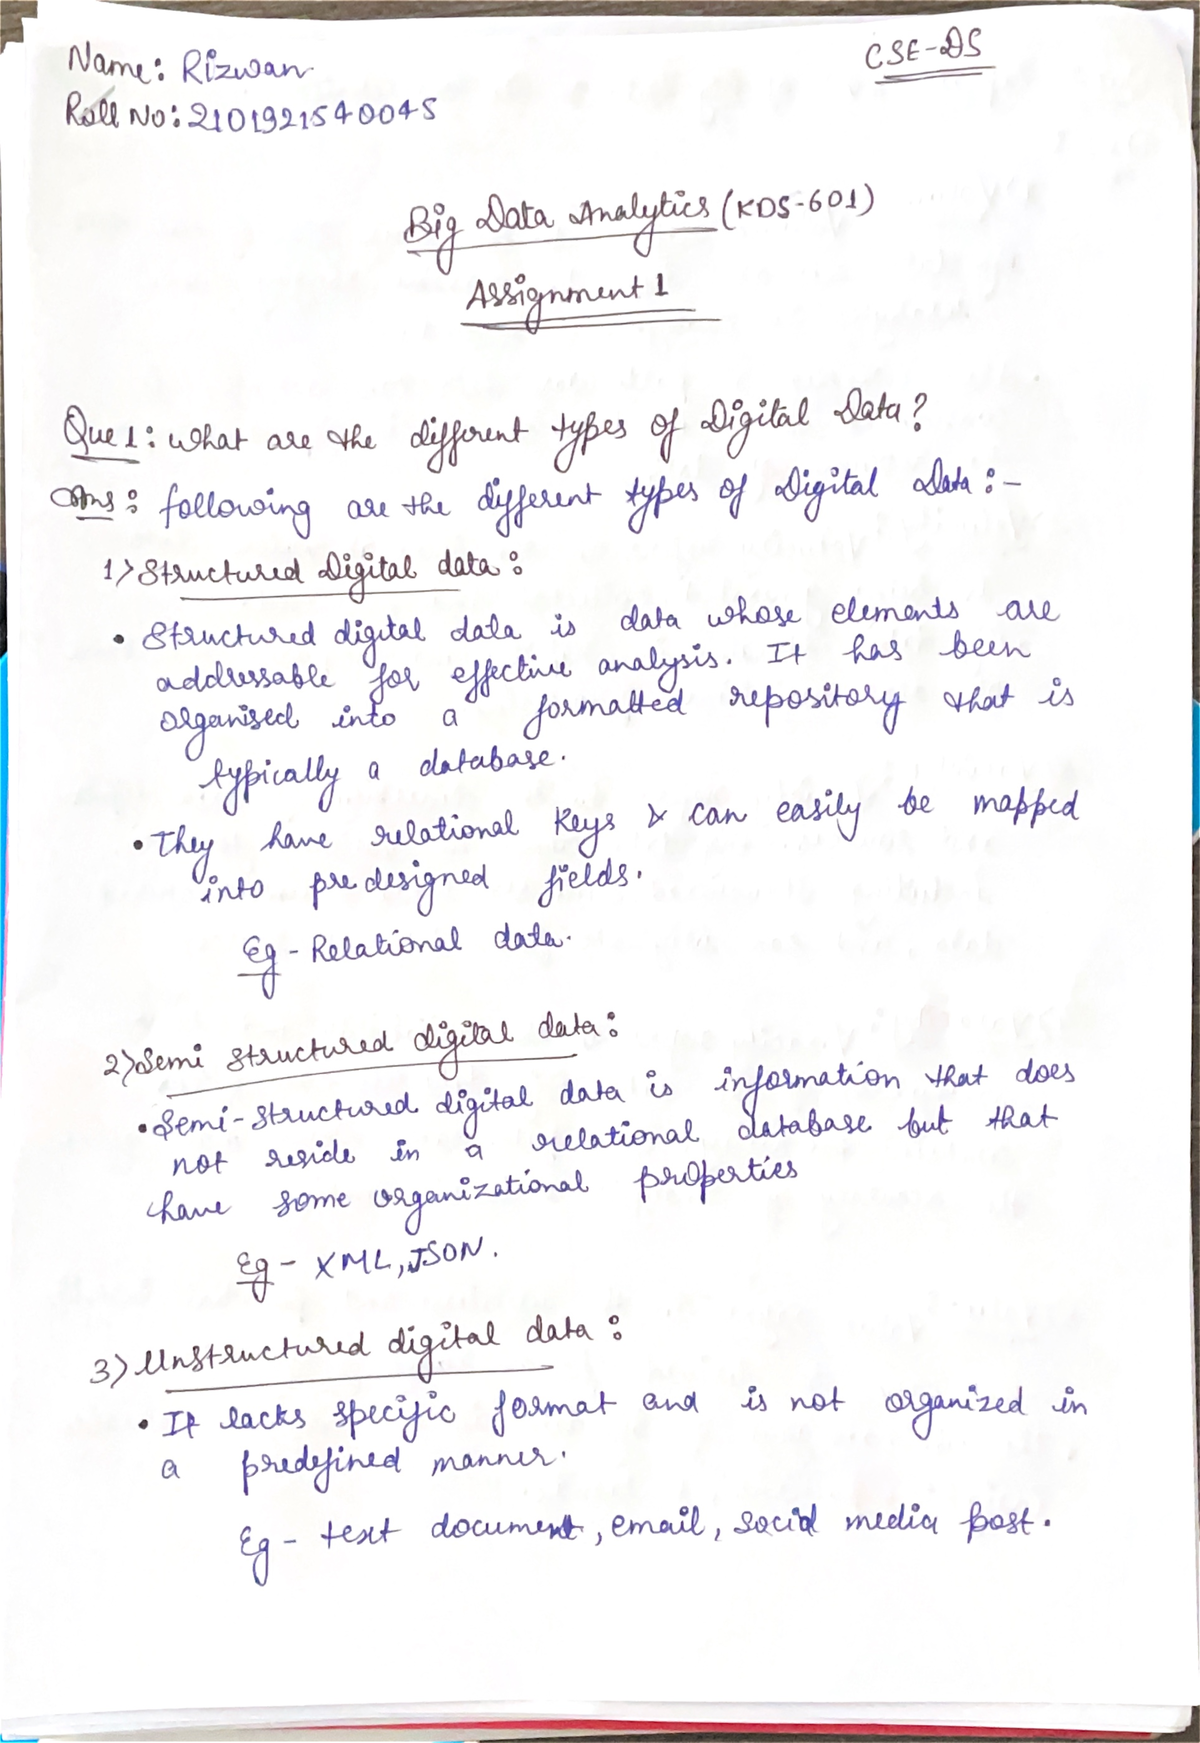 Name: Rizwan
CSE-DS
Roll No: 2101921540045
Big Data Analytics (KDS-601)
Assignment 1
Que 1: What are the different types of Digital Data?
Ans: following are the different types of Digital Data:-
1) Structured Digital data:
• Structured digital data is data whose elements are
addressable for effective analysis. It has been
organised into a formatted repository that is
typically a database.
• They have relational Keys & can easily be mapped
into predesigned fields.
Eg - Relational data.
2) Semi structured digital data:
• Semi-structured digital data is information that does
not reside in a relational database but that
have some organizational properties
Eg - XML, JSON.
3) Unstructured digital data:
• It lacks specific format and is not organized in
a predefined manner.
Eg - text document, email, social media post.